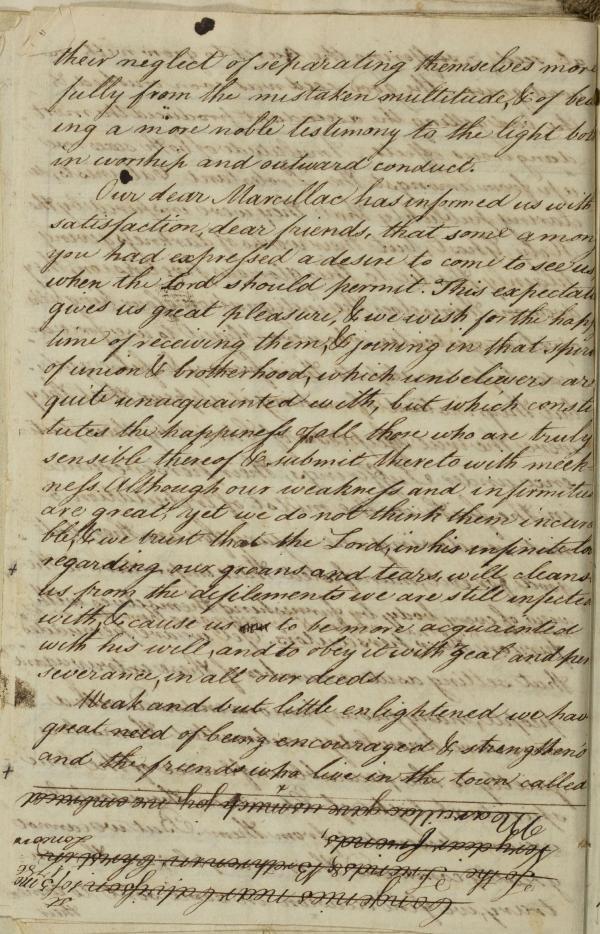 their neglect of separating themselves more
fully from the mistaken multitude, & of bea
ing a more noble testimony to the light bot
in worship and outward conduct.
Our dear Marcillac has informed us with
satisfaction, dear friends, that some among
you had expressed a desire to come to see us
when the Lord should permit. This expectati
gives us great pleasure, & we wish for the hap
time of receiving them, & joining in that spiri
of union & brotherhood, which unbelievers are
quite unacquainted with, but which consti
tutes the happiness of all those who are truly
sensible thereof & submit thereto with meek-
ness. Although our weakness and infirmities
are great, yet we do not think them incura
ble, & we trust that the Lord, in his infinite lov
regarding our groans and tears, will cleans
us from the defilements we are still infected
with, & cause us to be more acquainted
with his will, and to obey it with zeal and per
severance, in all our deeds.
Weak and but little enlightened we hav
great need of being encouraged & strengthen'd
and the friends who live in the town called
Congenies near
To the Friends & Brethren in Christ in
London
Very dear Friends,
Marcillac gave